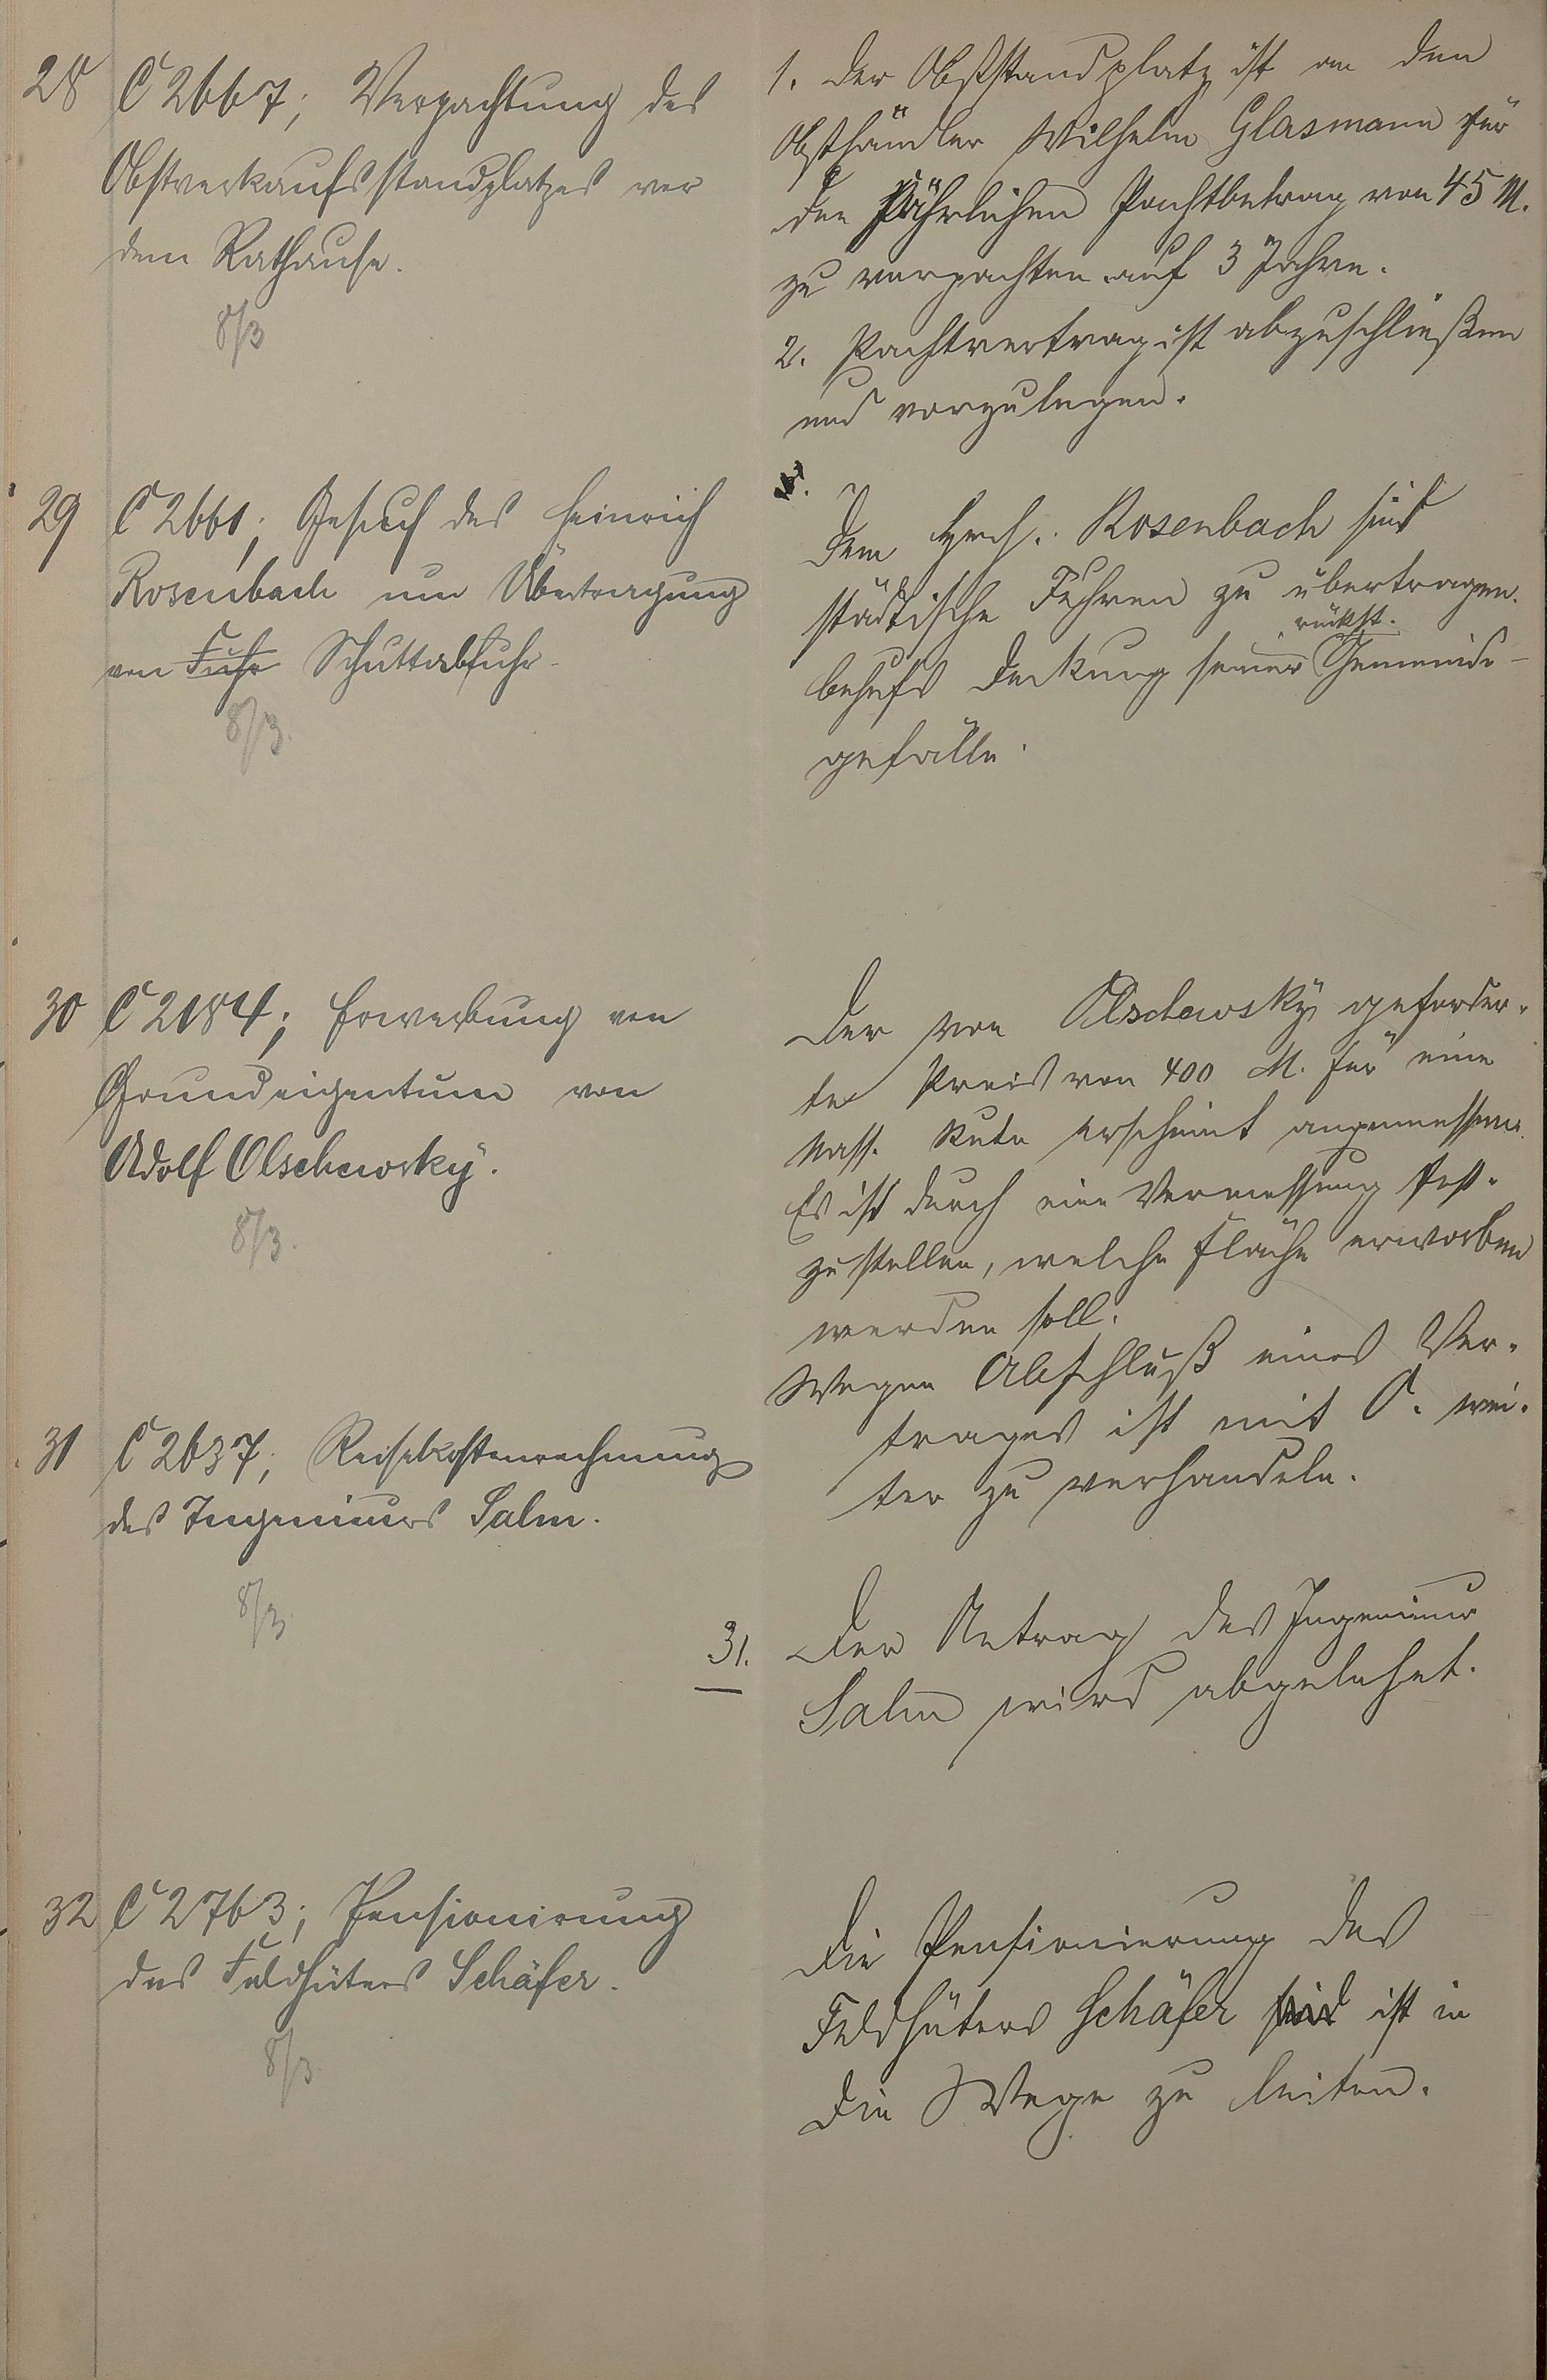 28 C 2667; Verpachtung des
Obstverkaufsstandplatzes vor
dem Rathause.
8/3
1. Der Obststandplatz ist an den
Obsthändler Wilhelm Glasmann für
den jährlichen Pachtbetrag von 45 M.
zu verpachten auf 3 Jahre.
2. Pachtvertrag ist abzuschließen
und vorzulegen.
29 C 2661; Gesuch des Heinrich
Rosenbach um Übertragung
von Fuhr Schuttabfuhr.
8/3.
Dem Hrch. Rosenbach sind
städtische Fuhren zu übertragen
rückst.
behufs Deckung seiner Gemeinde-
gefälle.
30 C 2184; Erwerbung von
Grundeigentum von
Adolf Olschewsky.
8/3.
Der von Olschewsky geforder-
te Preis von 400 M. für eine
Nass. Rute erscheint angemessen.
Es ist durch eine Vermessung fest-
zustellen, welche Fläche erworben
werden soll.
Wegen Abschluß eines Ver-
trages ist mit O. wei-
ter zu verhandeln.
31 C 2637; Reisekostenrechnung
des Ingenieurs Salm.
8/3
31. Der Antrag des Ingenieur
Salm wird abgelehnt.
32 C 2763; Pensionirung
des Feldhüters Schäfer.
8/3.
Die Pensionierung des
Feldhüters Schäfer sind ist in
die Wege zu leiten.